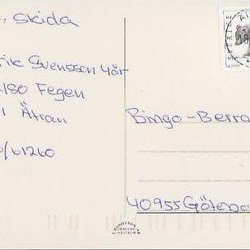 : skida
rik Svensson Hör
180 Fegen
1 Ätran
0/61260
Bingo-Berra
40955 Götebo